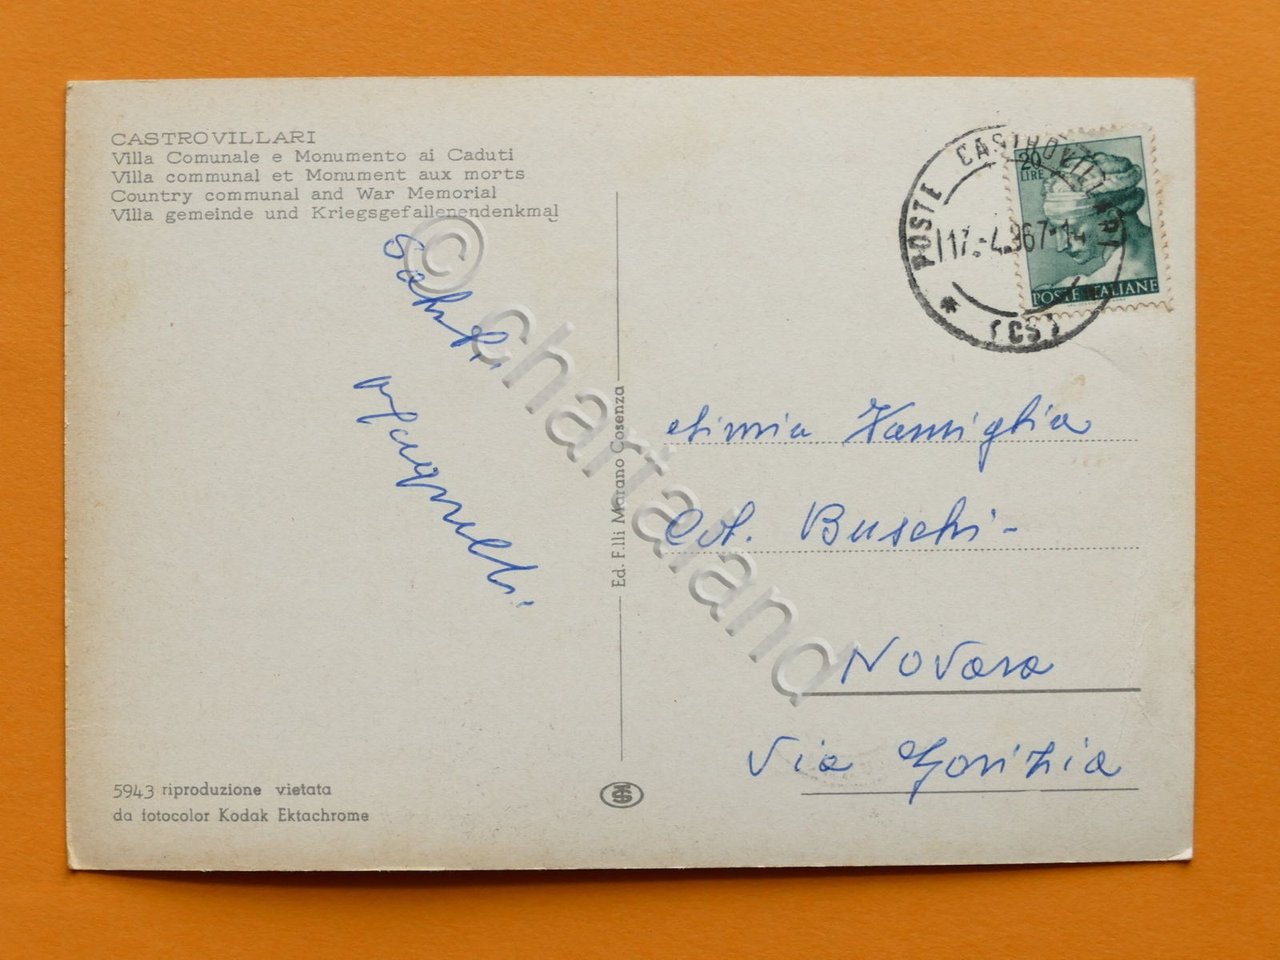 CASTROVILLARI
Villa Comunale e Monumento ai Caduti
Villa communal et Monument aux morts
Country communal and War Memorial
Villa gemeinde und Kriegsgefallenendenkmal
Saluti
POSTE CASTROVILLARI
20
LIRE
17.-4.967-14
POSTE ITALIANE
* (CS)
Famiglia
Buschi-
Novara
Via Gorizia
Ed. F.lli Marano Cosenza
5943 riproduzione vietata
da fotocolor Kodak Ektachrome
© chartaland